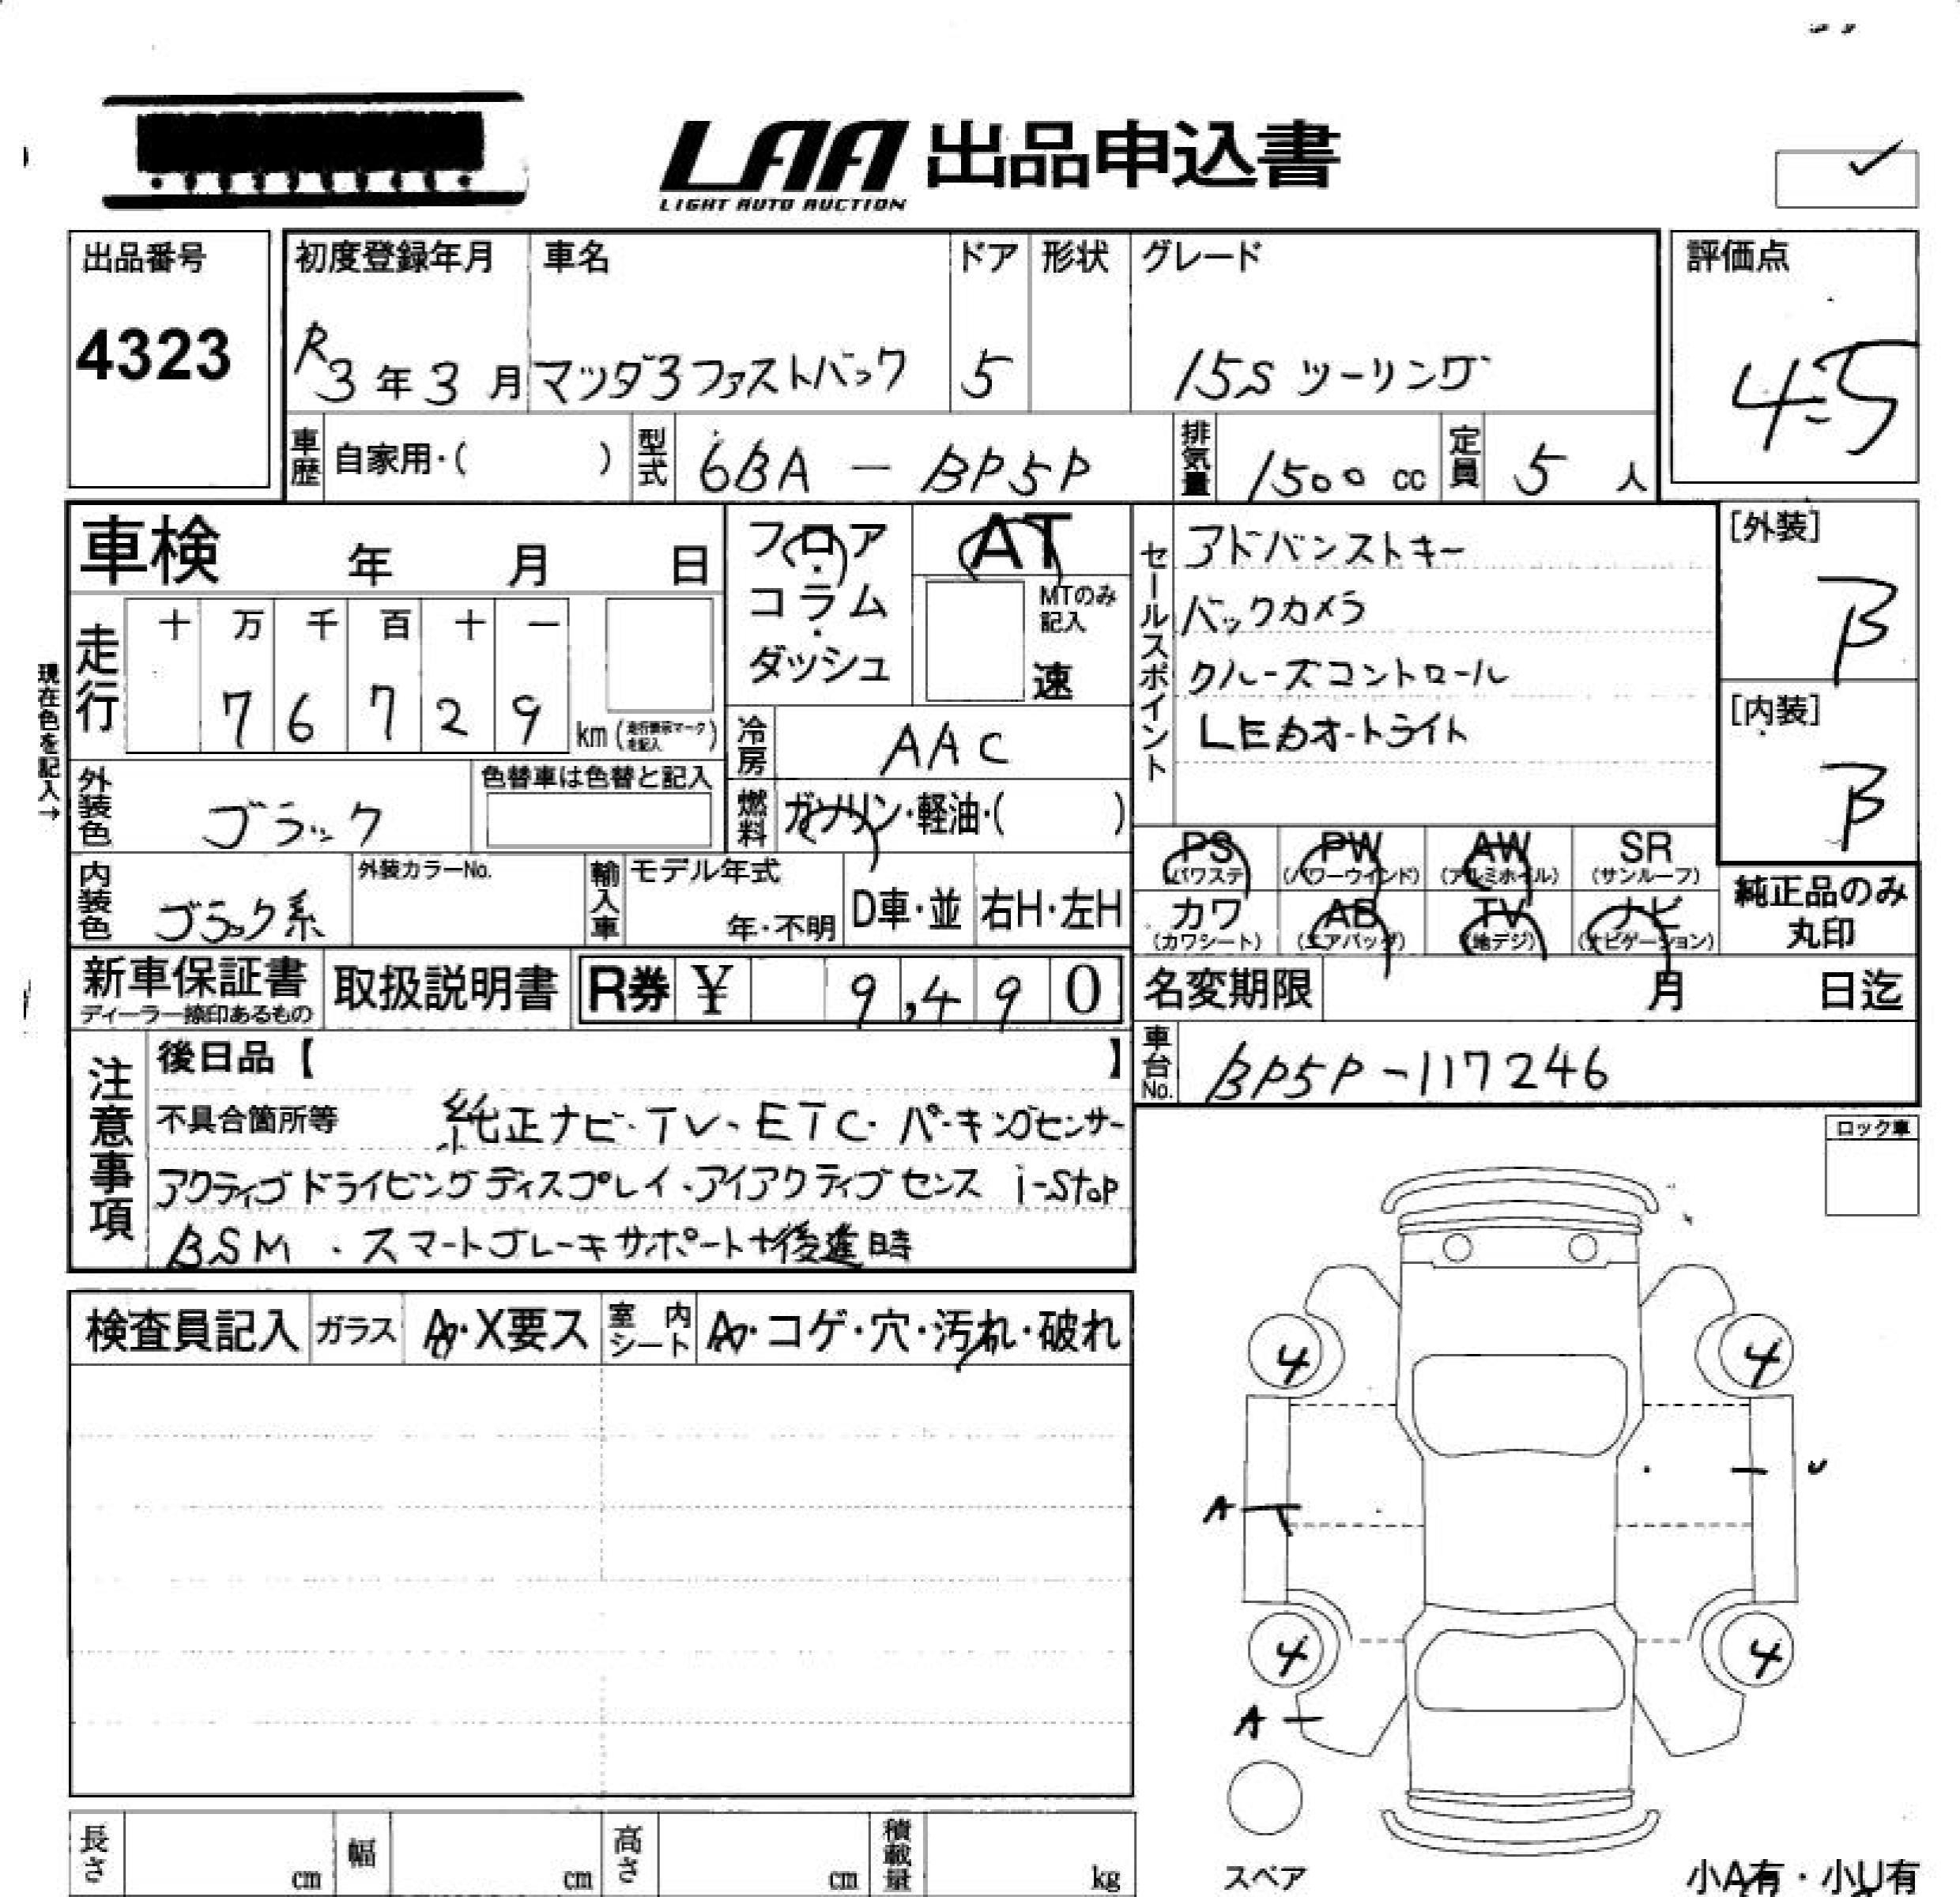 LAA 出品申込書
LIGHT AUTO AUCTION
出品番号
4323
初度登録年月
R3年3月
車名
マツダ3ファストバック
ドア
5
形状
グレード
15S ツーリング
評価点
4.5
車歴
自家用・( )
型式
6BA - BP5P
排気量
1500 cc
定員
5 人
車検 年 月 日
フロア・コラム・ダッシュ
AT
MTのみ記入
速
セールスポイント
アドバンストキー
バックカメラ
クルーズコントロール
LEDオートライト
[外装]
B
[内装]
B
現在色を記入→
走行
十 万 千 百 十 一
7 6 7 2 9
km (走行表示マークを記入)
冷房
AAC
外装色
ブラック
色替車は色替と記入
燃料
ガソリン・軽油・( )
内装色
ブラック系
外装カラーNo.
輸入車
モデル年式
年・不明
D車・並
右H・左H
PS (パワステ)
PW (パワーウインド)
AW (アルミホイル)
SR (サンルーフ)
カワ (カワシート)
AB (エアバッグ)
TV (地デジ)
ナビ (ナビゲーション)
純正品のみ丸印
新車保証書
ディーラー捺印あるもの
取扱説明書
R券 ¥ 9,490
名変期限 月 日迄
車台No.
BP5P-117246
注意事項
後日品【 】
不具合箇所等 純正ナビ・TV、ETC・パーキングセンサー
アクティブドライビングディスプレイ、アイアクティブセンス i-stop
BSM ・スマートブレーキサポート+後進時
ロック車
検査員記入
ガラス
A・X要ス
室内シート
A・コゲ・穴・汚れ・破れ
4
4
A
U
4
4
A
スペア
小A有・小U有
長さ cm
幅 cm
高さ cm
積載量 kg